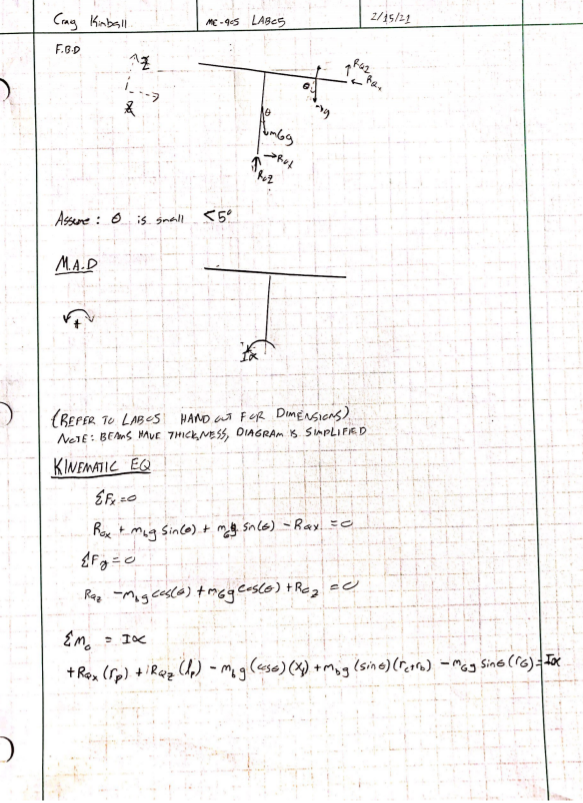 Crag Kinball
ME-405 LAB05
2/15/21
F.B.D
Z
X
RQZ
RQx
θ
g
θ
mGg
Rox
Roz
Assume: θ is small <5°
M.A.D
+
Iα
(REFER TO LAB05 HAND OUT FOR DIMENSIONS)
NOTE: BEAMS HAVE THICKNESS, DIAGRAM IS SIMPLIFIED
KINEMATIC EQ
ΣFx=0
Rox + mbg Sin(θ) + mGg Sn(θ) - RQx = 0
ΣFz=0
RQz - mbg cos(θ) + mGg cos(θ) + Roz = 0
ΣMo = Iα
+RQx (rp) + RQz (lp) - mbg (cosθ)(xb) + mbg (sinθ)(rc+rb) - mGg Sinθ (rG) = Iα